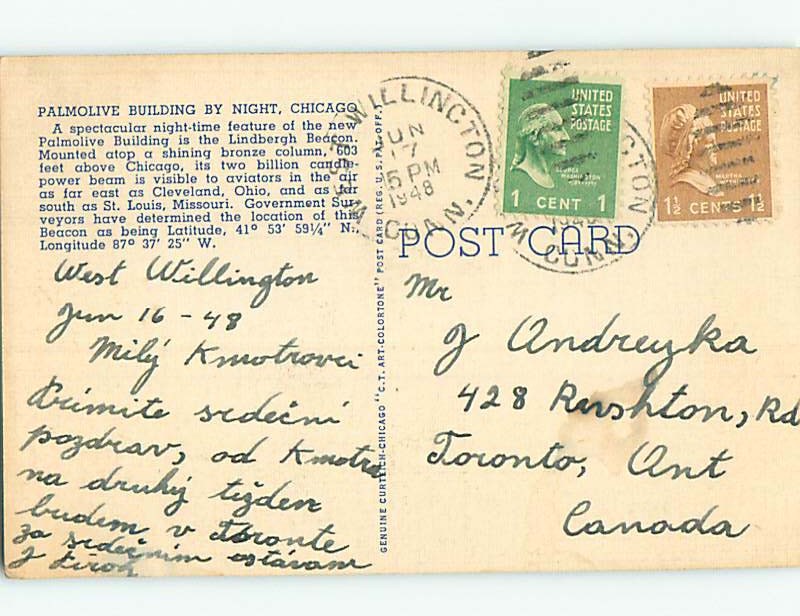 PALMOLIVE BUILDING BY NIGHT, CHICAGO
A spectacular night-time feature of the new
Palmolive Building is the Lindbergh Beacon.
Mounted atop a shining bronze column, 603
feet above Chicago, its two billion candle-
power beam is visible to aviators in the air
as far east as Cleveland, Ohio, and as far
south as St. Louis, Missouri. Government Sur-
veyors have determined the location of this
Beacon as being Latitude, 41° 53' 59¼" N.,
Longitude 87° 37' 25" W.
West Willington
Jun 16 - 48
Milý Kmotrovci
Primite srdečni
pozdrav, od Kmotra
na druhy tižden
budem v Toronte
za srdečnim ostávam
J
GENUINE CURTEICH-CHICAGO "C.T. ART-COLORTONE" POST CARD (REG. U.S. PAT. OFF.)
WILLINGTON
JUN
17
5 PM
1948
CONN.
UNITED
STATES
POSTAGE
GEORGE
WASHINGTON
1 CENT 1
UNITED
STATES
POSTAGE
MARTHA
WASHINGTON
1½ CENTS 1½
CONN.
POST CARD
Mr
J Andreyka
428 Rushton, Rd
Toronto, Ont
Canada